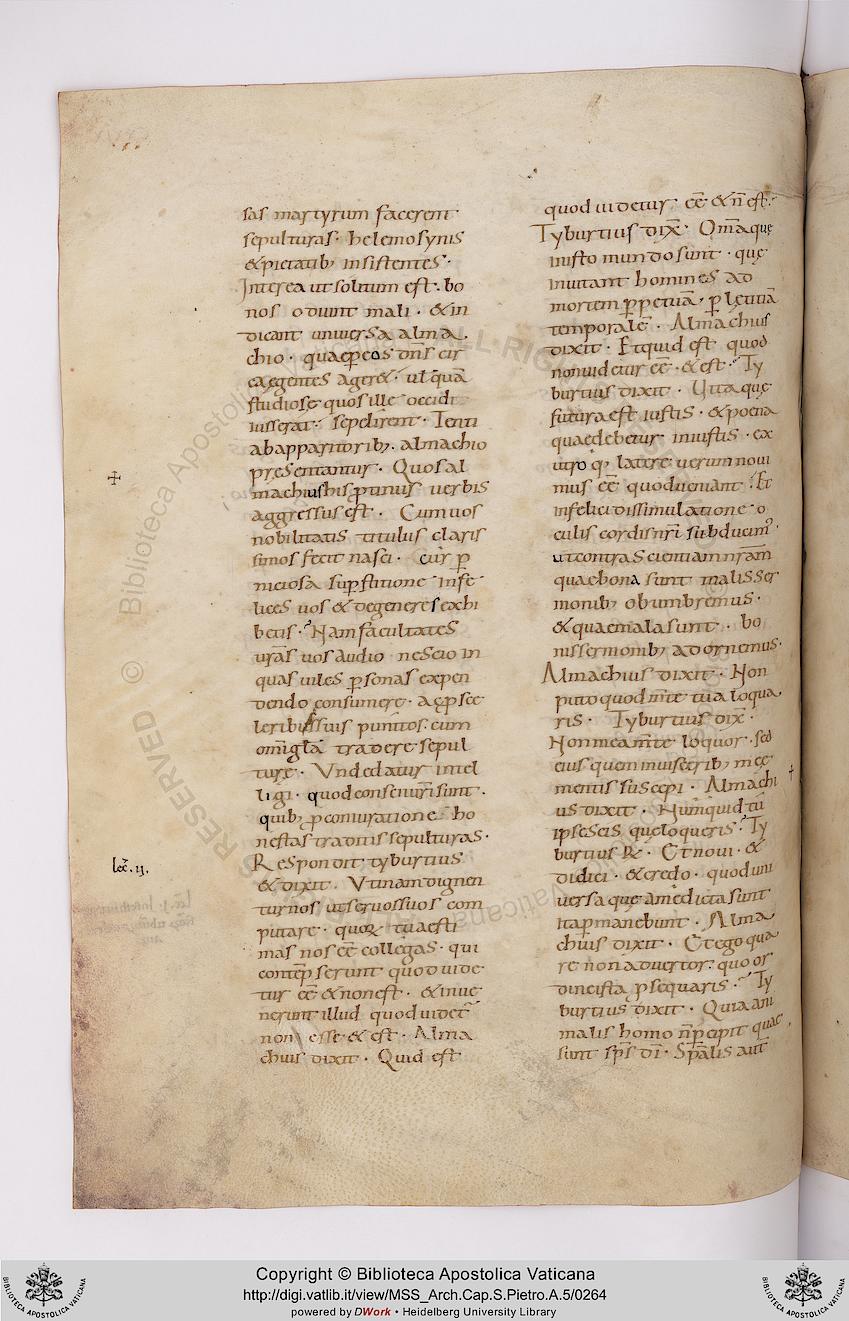 sas martyrum facerent·
sepulturas· helemosynis
&pietatib; insistentes·
Interea ut solitum est·bo
nos oderunt mali· &in
dicant universa alma
chio· quaeper eos dn̄s cir
caegentes ager&· ul̄ quā
studiose quos ille occidi
iusserat· sepelirent· Tenti
abapparitorib; almachio
presentantur· Quos al
machiushis protinus uerbis
aggressus est· Cum uos
nobilitatis titulus claris
simos fecit nasci· cur p
niciosa sup̄stitione Infe
lices uos &degeneres exhi
betis· Nam facultates
urās uos audio nescio in
quas uiles psonas expen
dendo consumere· acpsce
leribus suis punitos cum
om̄i gl̄a tradere sepul
ture· Unde datur intel
ligi· quod conscii uri sunt·
quib; pconiuratione ho
nestas traditis sepulturas·
Respondit tyburtius
&dixit· Utinam dignen
tur nos ut seruos suos com
putare· quorum tu aesti
mas nos eē collegas· qui
contēpserunt quod uide
tur eē &non est· &inue
nerunt illud quod uidet
non esse &est· Alma
chius dixit· Quid est
lec̄·ij·
quod uidetur eē &n̄ est·
Tyburtius dix̄· Om̄a que
inisto mundo sunt· que
inuitant homines ad
mortem ppetuā· p letitiā
temporalē· Almachius
dixit· Et quid est quod
non uidetur eē· &est· Ty
burtius dixit· Uita que
futura est iustis· &poena
quae debetur iniustis· ex
utroq; latere uerum noui
mus eē quod ueniant· Et
infelici dissimulatione o
culis cordis nr̄i subducim'
ut contra scientiam nr̄am
quae bona sunt malis ser
monib; obumbremus·
&quae mala sunt· bo
nis sermonib; adornemus·
Almachius dixit· Non
puto quod m̄te tua loqua
ris· Tyburtius dix̄·
Non mea m̄te loquor· sed
eius quem inuiscerib; meę
mentis suscepi· Almachi
us dixit· Numquid tu
ipse scis quę loqueris· Ty
burtius R̄· Et noui· &
didici· &credo· quod uni
uersa que a me dicta sunt
ita pmanebunt· Alma
chius dixit· Et ego qua
re non aduertor· quo or
dine ista psequaris· Ty
burtius dixit· Quia ani
malis homo n̄ pcipit quae
sunt sp̄s dī· Sp̄alis aut̄
Copyright © Biblioteca Apostolica Vaticana
http://digi.vatlib.it/view/MSS_Arch.Cap.S.Pietro.A.5/0264
powered by DWork • Heidelberg University Library